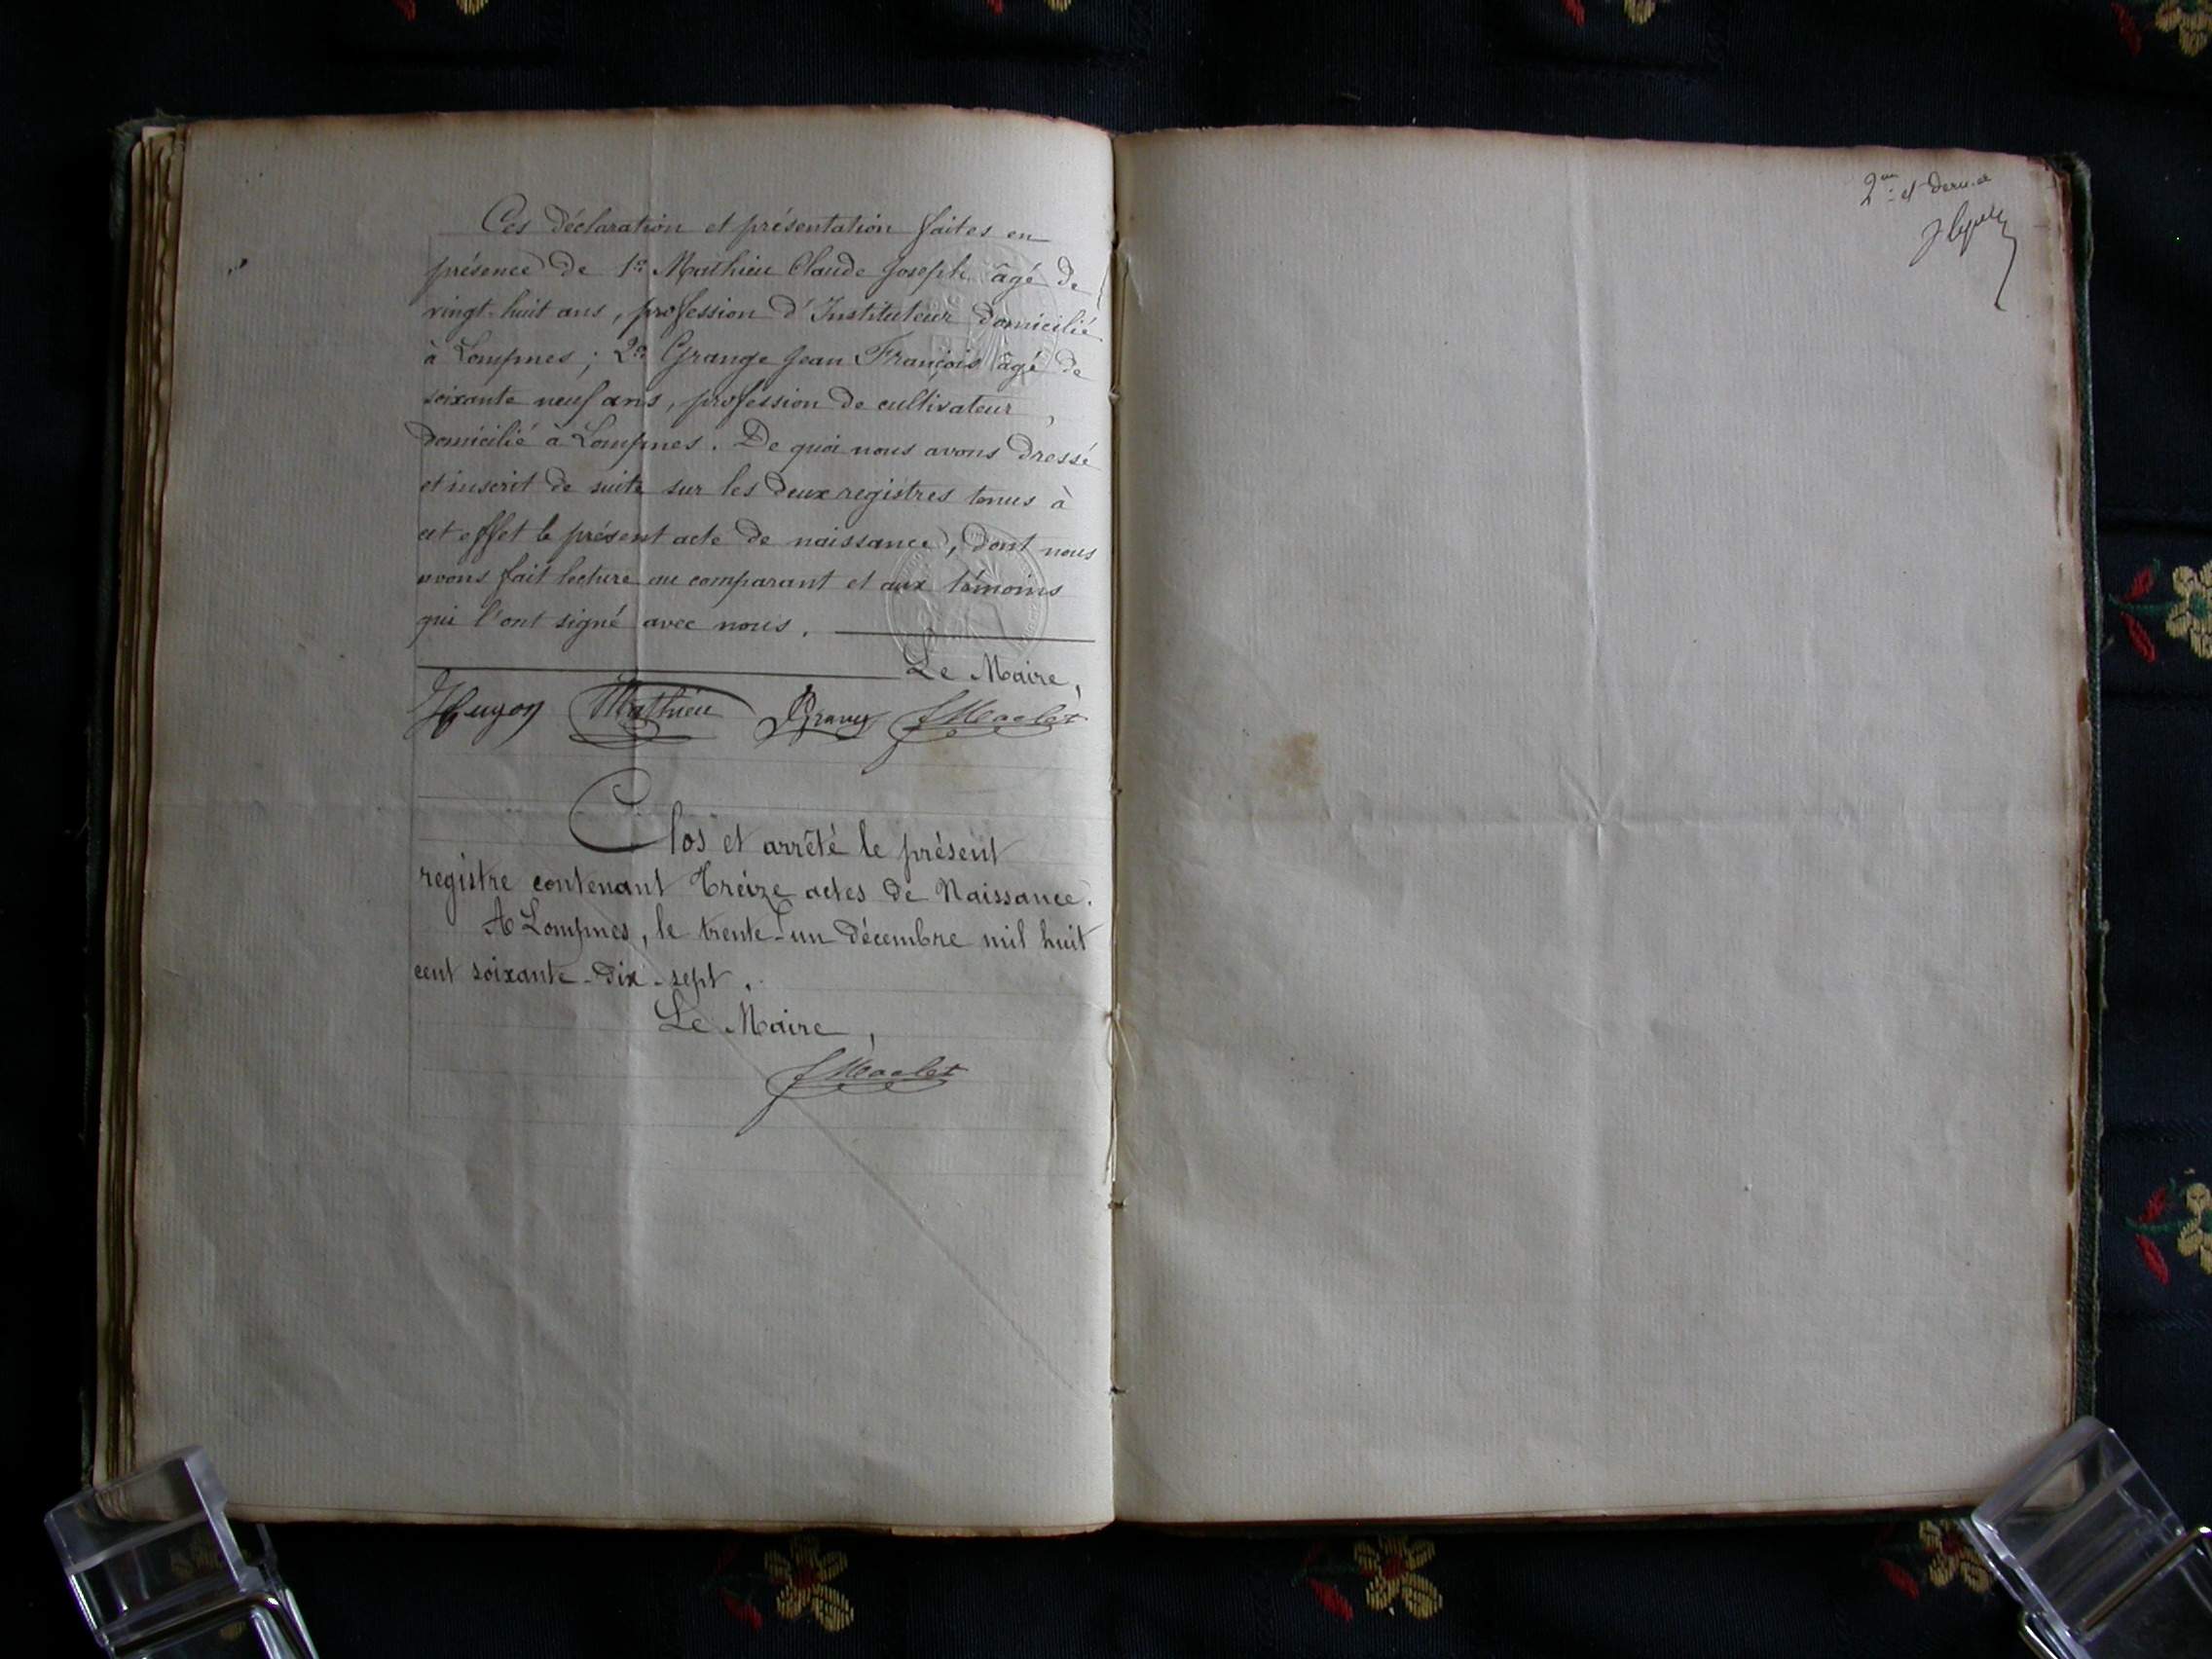 Ces déclaration et présentation faites en
présence de 1º Mathieu Claude Joseph âgé de
vingt-huit ans, profession d'Instituteur domicilié
à Lompnes ; 2º Grange Jean François âgé de
soixante neuf ans, profession de cultivateur,
domicilié à Lompnes. De quoi nous avons dressé
et inscrit de suite sur les deux registres tenus à
cet effet le présent acte de naissance, dont nous
avons fait lecture au comparant et aux témoins
qui l'ont signé avec nous.
Le Maire,
Mathieu
Clos et arrêté le présent
registre contenant treize actes de Naissance.
A Lompnes, le trente-un décembre mil huit
cent soixante-dix-sept.
Le Maire,
2me et dernier